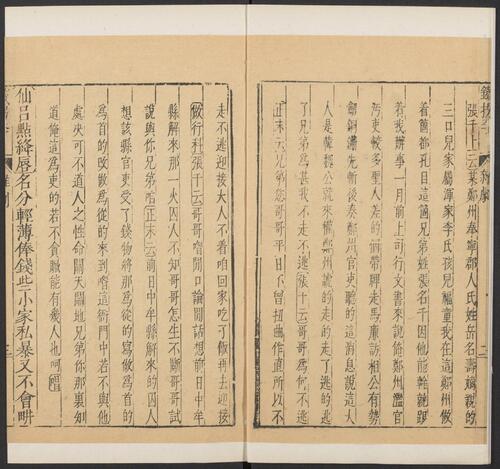 鐵拐李
雜劇
二
張千上云某鄭州奉寧郡人氏姓岳名壽嫡親的
三口兒家屬渾家李氏孩兒福童我在這鄭州做
着箇都孔目這箇兄弟姓張名千因他能幹就跟
着我辦事一月前上司行文書來說俺鄭州濫官
污吏較多聖人差的箇帶牌走馬廉訪相公有勢
劍銅鍘先斬後奏鄭州官吏聽的這消息說這大
人是韓魏公就來權鄭州說的走的走了逃的逃
了兄弟為甚我不走不逃張千云哥哥為何不逃
正末云兄弟您哥哥平日不曾扭曲作直所以不
走不逃迎接大人不着咱回家吃了飯再去迎接
做行科張千云哥哥喒閒口論閒話想前日中牟
縣解來那一火囚人不知哥哥怎生不斷哥哥試
說與你兄弟咱正末云前日中牟縣解來的囚人
想該縣官吏受了錢物將那為從的寫做為首的
為首的改做為從的來到喒這衙門中若不與他
處決可不道人之性命關天關地兄弟你那裏知
道俺這為吏的若不貪贓能有幾人也呵唱
仙呂點絳唇名分輕薄俸錢些小家私暴又不會畊